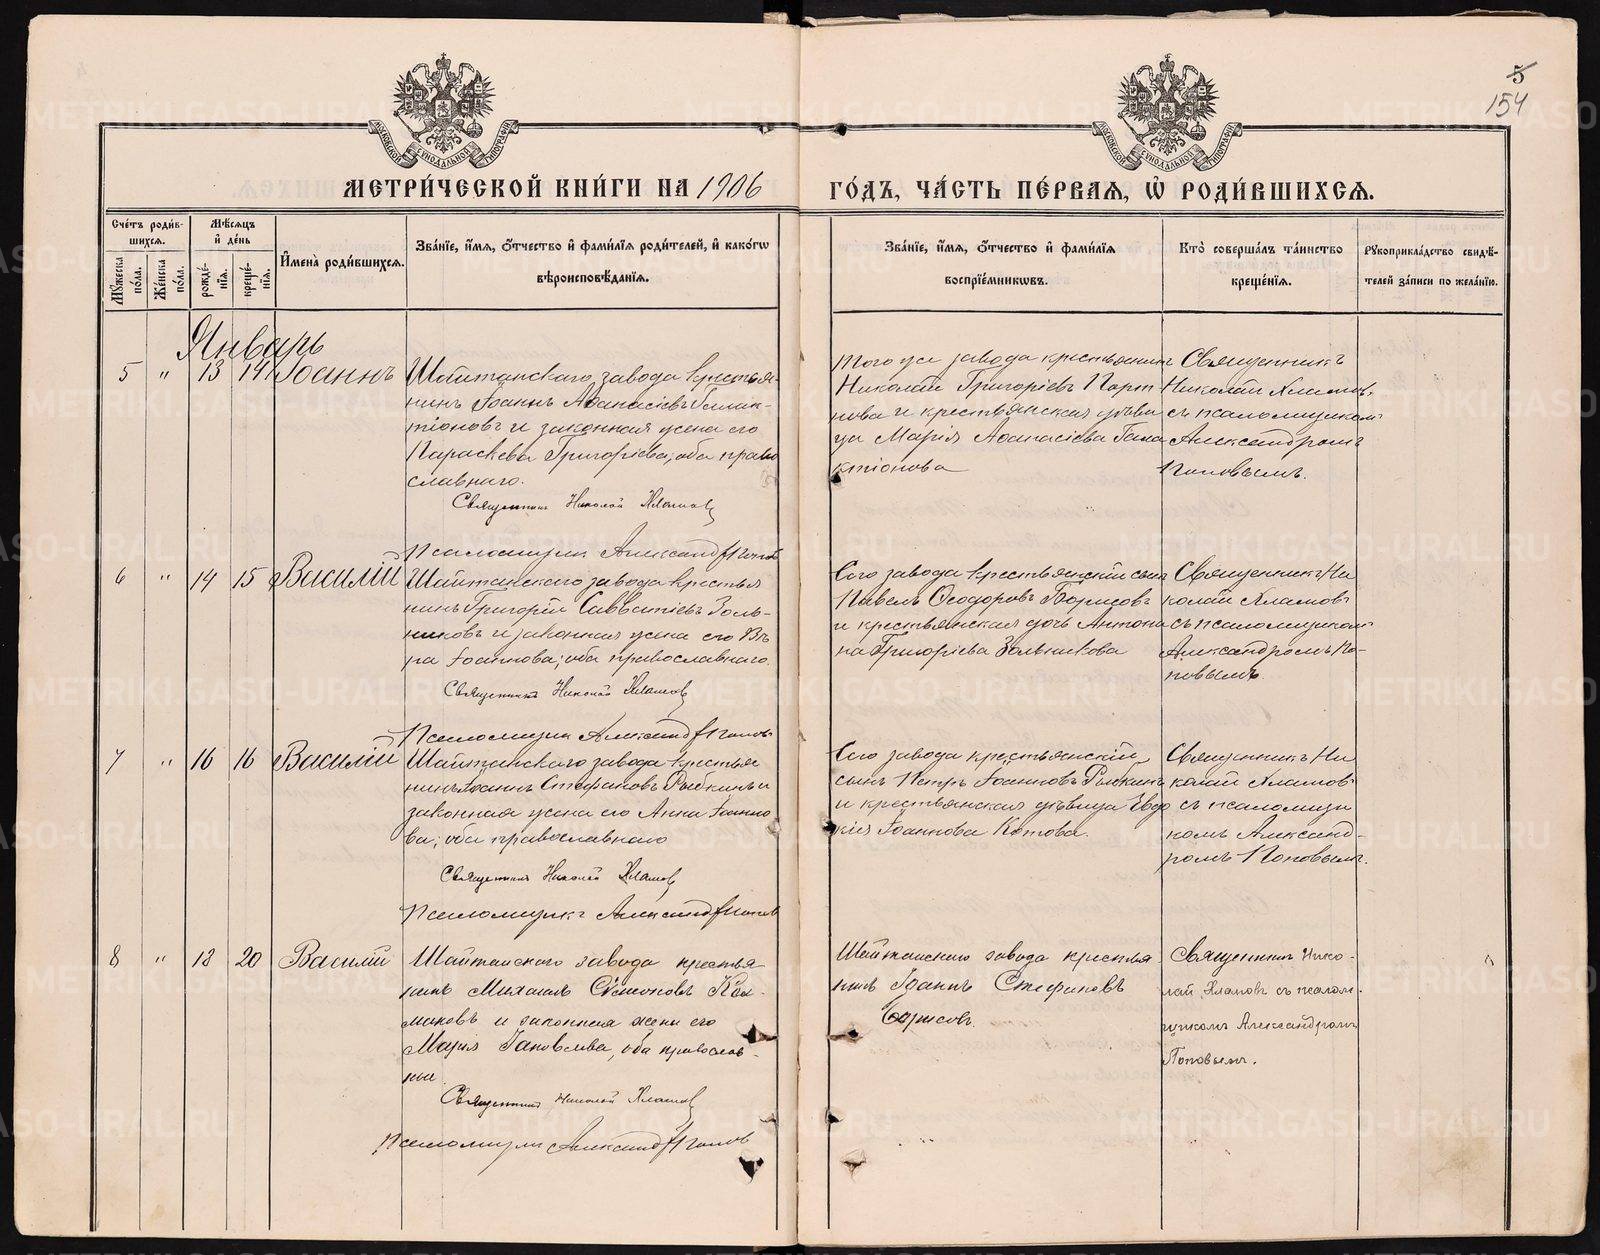 5
154
МОСКОВСКОЙ СѴНОДАЛЬНОЙ ТИПОГРАФІИ
МОСКОВСКОЙ СѴНОДАЛЬНОЙ ТИПОГРАФІИ
МЕТРИ́ЧЕСКОЙ КНИ́ГИ НА 1906
ГО́ДЪ, ЧА́СТЬ ПЕ́РВАЯ, Ѡ҆ РОДИ́ВШИХСЯ.
Сче́тъ роди́в-
шихся.
Мѣ́сяцъ
и҆ де́нь
Мꙋ́жеска по́ла.
Же́нска по́ла.
рожде́-
нїѧ.
креще́-
нїѧ.
И҆мена̀ роди́вшихся.
Зва́нїе, и҆́мя, о҆́тчество и҆ фами́лїя роди́телей, и҆ како́гѡ
вѣроисповѣ́данїя.
Зва́нїе, и҆́мя, о҆́тчество и҆ фами́лїя
воспрїе́мниковъ.
Кто̀ соверша́лъ та́инство
креще́нїя.
Рꙋкоприкла́дство свидѣ́-
телей за́писи по жела́нїю.
Январь
5 " 13 14 Іоаннъ
Шайтанскаго завода крестья-
нинъ Іоаннъ Аѳанасіевъ Галак-
тіоновъ и законная жена его
Параскева Григоріева; оба право
славнаго.
Священникъ Николай Хламовъ
Псаломщикъ Александръ Поповъ
того же завода крестьянинъ
Николай Григоріевъ Порт
нова и крестьянская дѣви
ца Марія Аѳанасіева Гала
ктіонова
Священникъ
Николай Хламовъ
съ псаломщикомъ
Александромъ
Поповымъ.
6 " 14 15 Василій
Шайтанскаго завода крестья
нинъ Григорій Савватіевъ Золь-
никовъ и законная жена его Вѣ
ра Іоаннова; оба православнаго.
Священникъ Николай Хламовъ
Псаломщикъ Александръ Поповъ
Сего завода крестьянскій сынъ
Павелъ Ѳеодоровъ Борисовъ
и крестьянская дочь Антони
на Григоріева Зольникова
Священникъ Ни
колай Хламовъ
съ псаломщикомъ
Александромъ По-
повымъ.
7 " 16 16 Василій
Шайтанскаго завода крестья
нинъ Іоаннъ Стефановъ Рыбкинъ и
законная жена его Анна Іоанно
ва; оба православнаго
Священникъ Николай Хламовъ
Псаломщикъ Александръ Поповъ
Сего завода крестьянскій
сынъ Петръ Іоанновъ Рыбкинъ
и крестьянская дѣвица Евдо
кія Іоаннова Котова.
Священникъ Ни
колай Хламовъ
съ псаломщи
комъ Александ-
ромъ Поповымъ.
8 " 18 20 Василій
Шайтанскаго завода крестья
нинъ Михаилъ Симеоновъ Кол-
маковъ и законная жена его
Марія Іаковлева, оба православ-
ные.
Священникъ Николай Хламовъ
Псаломщикъ Александръ Поповъ
Шайтанскаго завода крестья
нинъ Іоаннъ Стефановъ
Борисовъ.
Священникъ Нико-
лай Хламовъ съ псалом-
щикомъ Александромъ
Поповымъ.
METRIKI.GASO-URAL.RU